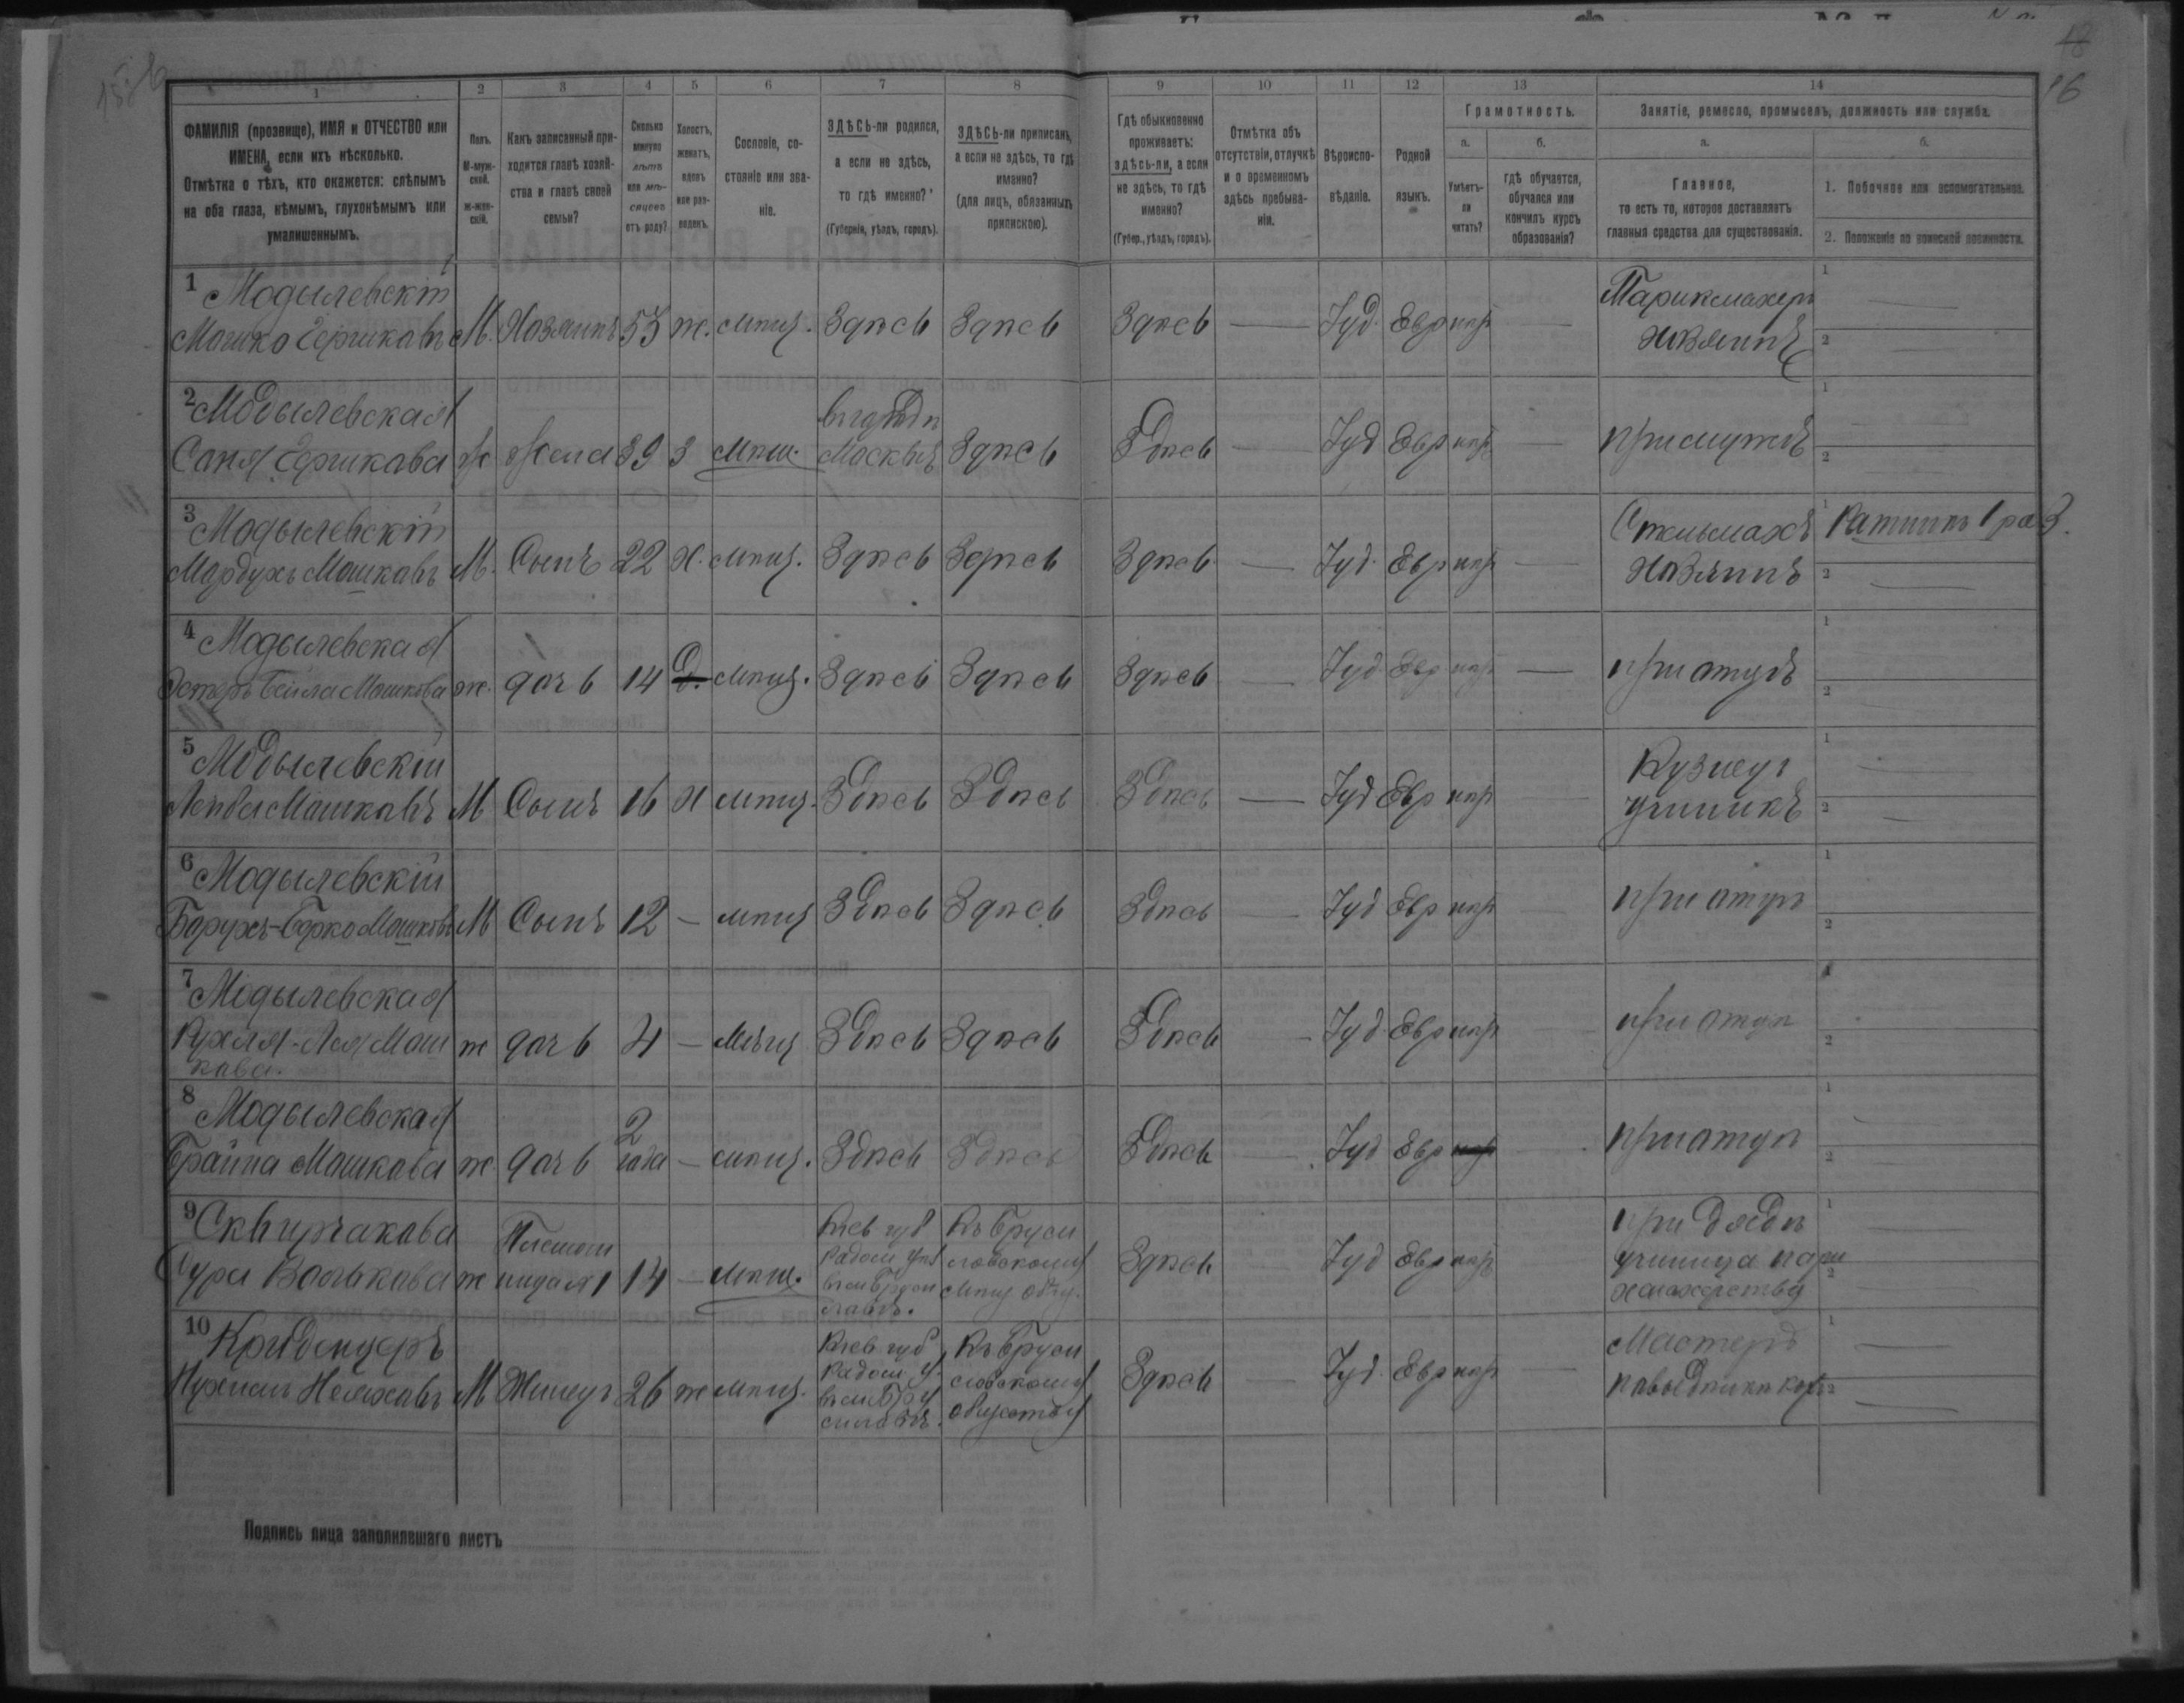 16
1 2 3 4 5 6 7 8 9 10 11 12 13 14
ФАМИЛІЯ (прозвище), ИМЯ и ОТЧЕСТВО или
ИМЕНА, если ихъ нѣсколько.
Отмѣтка о тѣхъ, кто окажется: слѣпымъ
на оба глаза, нѣмымъ, глухонѣмымъ или
умалишеннымъ.
Полъ.
М-муж-
ской.
ж-жен-
скій.
Какъ записанный при-
ходится главѣ хозяй-
ства и главѣ своей
семьи?
Сколько
минуло
лѣтъ
или мѣ-
сяцевъ
отъ роду?
Холостъ,
женатъ,
вдовъ
или раз-
веденъ.
Сословіе, со-
стояніе или зва-
ніе.
ЗДѢСЬ-ли родился,
а если не здѣсь,
то гдѣ именно?
(Губернія, уѣздъ, городъ).
ЗДѢСЬ-ли приписанъ,
а если не здѣсь, то гдѣ
именно?
(для лицъ, обязанныхъ
припискою).
Гдѣ обыкновенно
проживаетъ:
здѣсь-ли, а если
не здѣсь, то гдѣ
именно?
(Губер., уѣздъ, городъ).
Отмѣтка объ
отсутствіи, отлучкѣ
и о временномъ
здѣсь пребыва-
ніи.
Вѣроиспо-
вѣданіе.
Родной
языкъ.
Грамотность.
а.
Умѣетъ-
ли
читать?
б.
гдѣ обучается,
обучался или
кончилъ курсъ
образованія?
Занятіе, ремесло, промыселъ, должность или служба.
а.
Главное,
то есть то, которое доставляетъ
главныя средства для существованія.
б.
1. Побочное или вспомогательное.
2. Положеніе по воинской повинности.
1 Модылевскій
Мошко Гершкавъ М. Хозяинъ 53 ж. мѣщ. Здѣсь Здѣсь Здѣсь — Іуд. Евр нѣр — Парикмахеръ
хозяинъ
2 Модылевская
Саня Гершкава ж жена 39 З мѣщ. Здѣсь Здѣсь — Іуд Евр нѣр — при мужѣ
3 Модылевскій
Мордухъ Мошкавъ М. Сынъ 22 Х. мѣщ. Здѣсь Здѣсь Здѣсь — Іуд. Евр нѣр — Стельмахъ
хозяинъ
Ратникъ 1 раз.
4 Модылевская
Эстеръ Бейла Мошкова ж. дочь 14 мѣщ. Здѣсь Здѣсь Здѣсь — Іуд. Евр нѣр — при отцѣ
5 Модылевскій
Лейба Мошкавъ М Сынъ 16 Х мѣщ. Здѣсь Здѣсь Здѣсь — Іуд Евр нѣр — Кузнецъ
ученикъ
6 Модылевскій
Борухъ-Берко Мошковъ М Сынъ 12 — мѣщ Здѣсь Здѣсь Здѣсь — Іуд Евр нѣр — при отцѣ
7 Модылевская
Рухля-Лея Мош
кава. ж дочь 4 — мѣщ Здѣсь Здѣсь Здѣсь — Іуд. Евр нѣр — при отцѣ
8 Модылевская
Брайна Мошкава ж. дочь 2
года — мѣщ. Здѣсь Здѣсь Здѣсь — Іуд Евр — при отцѣ
9 Сквирчакава
Сура Волькава ж Племян
ница 14 — мѣщ. Кіев губ
Радом у
въ м Бруси
лавѣ.
Къ Бруси
ловскому
мѣщ общ.
Здѣсь Іуд Евр нѣр при дядѣ
ученица пари
кмахерству
10 Криденцеръ
М Жилецъ 26 ж мѣщ. Кіев губ
Радом. у.
въ м. Бру
силовѣ.
Къ Бруси
ловскому
обществу
Здѣсь Іуд. Евр нѣр — Мастеръ
Подпись лица заполнявшаго листъ